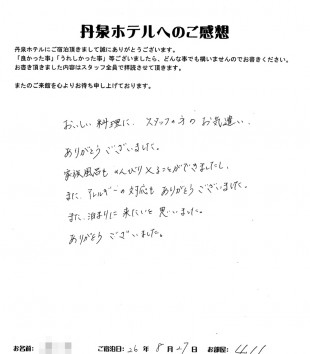 丹泉ホテルへのご感想
丹泉ホテルにご宿泊頂きまして誠にありがとうございます。
「良かった事」「うれしかった事」等ございましたら、どんな事でも構いませんのでお書きください。
お書き頂きました内容はスタッフ全員で拝読させて頂きます。
またのご来館を心よりお待ち申し上げております。
おいしい料理に、スタッフの方のお気遣い、
ありがとうございました。
家族風呂ものんびり入ることができましたし、
また、アレルギーの対応もありがとうございました。
また、泊まりに来たいと思いました。
ありがとうございました。
お名前: ご宿泊日: 26年 8月 27日 お部屋: 411